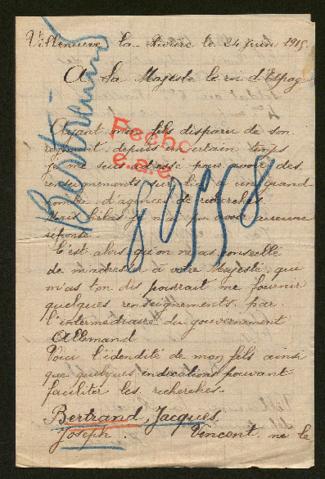 Villeneuve la Rivière le 24 juin 1915
A Sa Majesté le roi d'Espagne
Bertrand
Ayant mon fils disparu de son
regiment depuis un certain temps
Fecho
je me suis adressé pour avoir des
e.a.e
renseignements sur lui à un grand
nombre d'agences de recherches.
Mais hélas je n'ai pu avoir aucune
réponse.
C'est alors qu'on m'a conseillé
de m'adresser à votre Majesté, qui
m'a-t-on dit pourrait me fournir
quelques renseignements par
l'intermédiaire du gouvernement
Allemand
Voici l'idendité de mon fils ainsi
que quelques indications pouvant
faciliter les recherches.
Bertrand, Jacques
Joseph, Vincent, né le